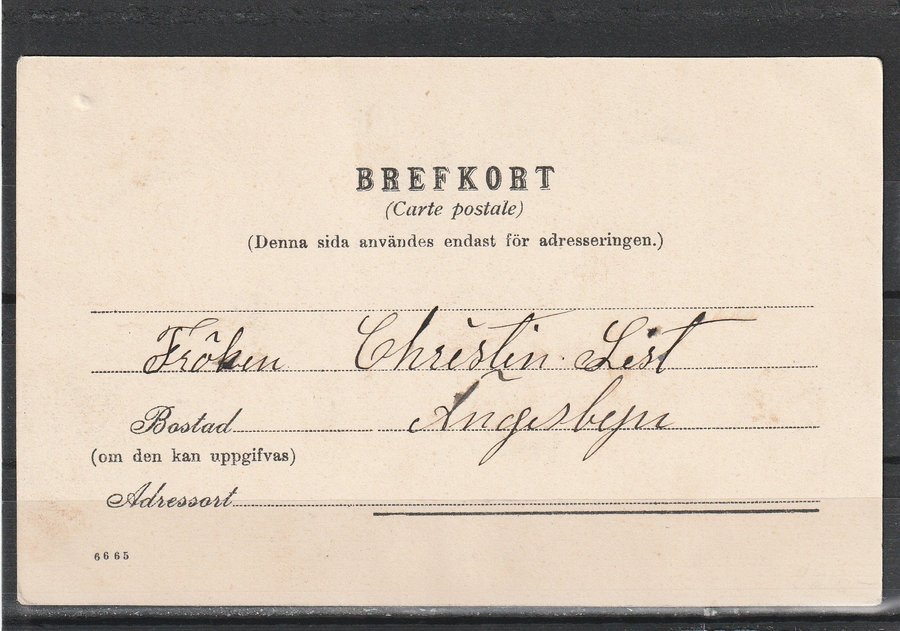 BREFKORT
(Carte postale)
(Denna sida användes endast för adresseringen.)
Fröken Christin List
Bostad Ängesbyn
(om den kan uppgifvas)
Adressort
6665